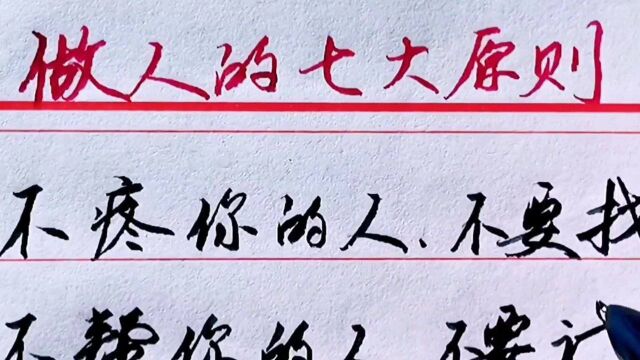 做人的七大原则
不疼你的人、不要找
不帮你的人、不要